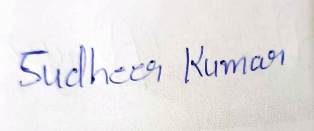 Sudheer Kumar